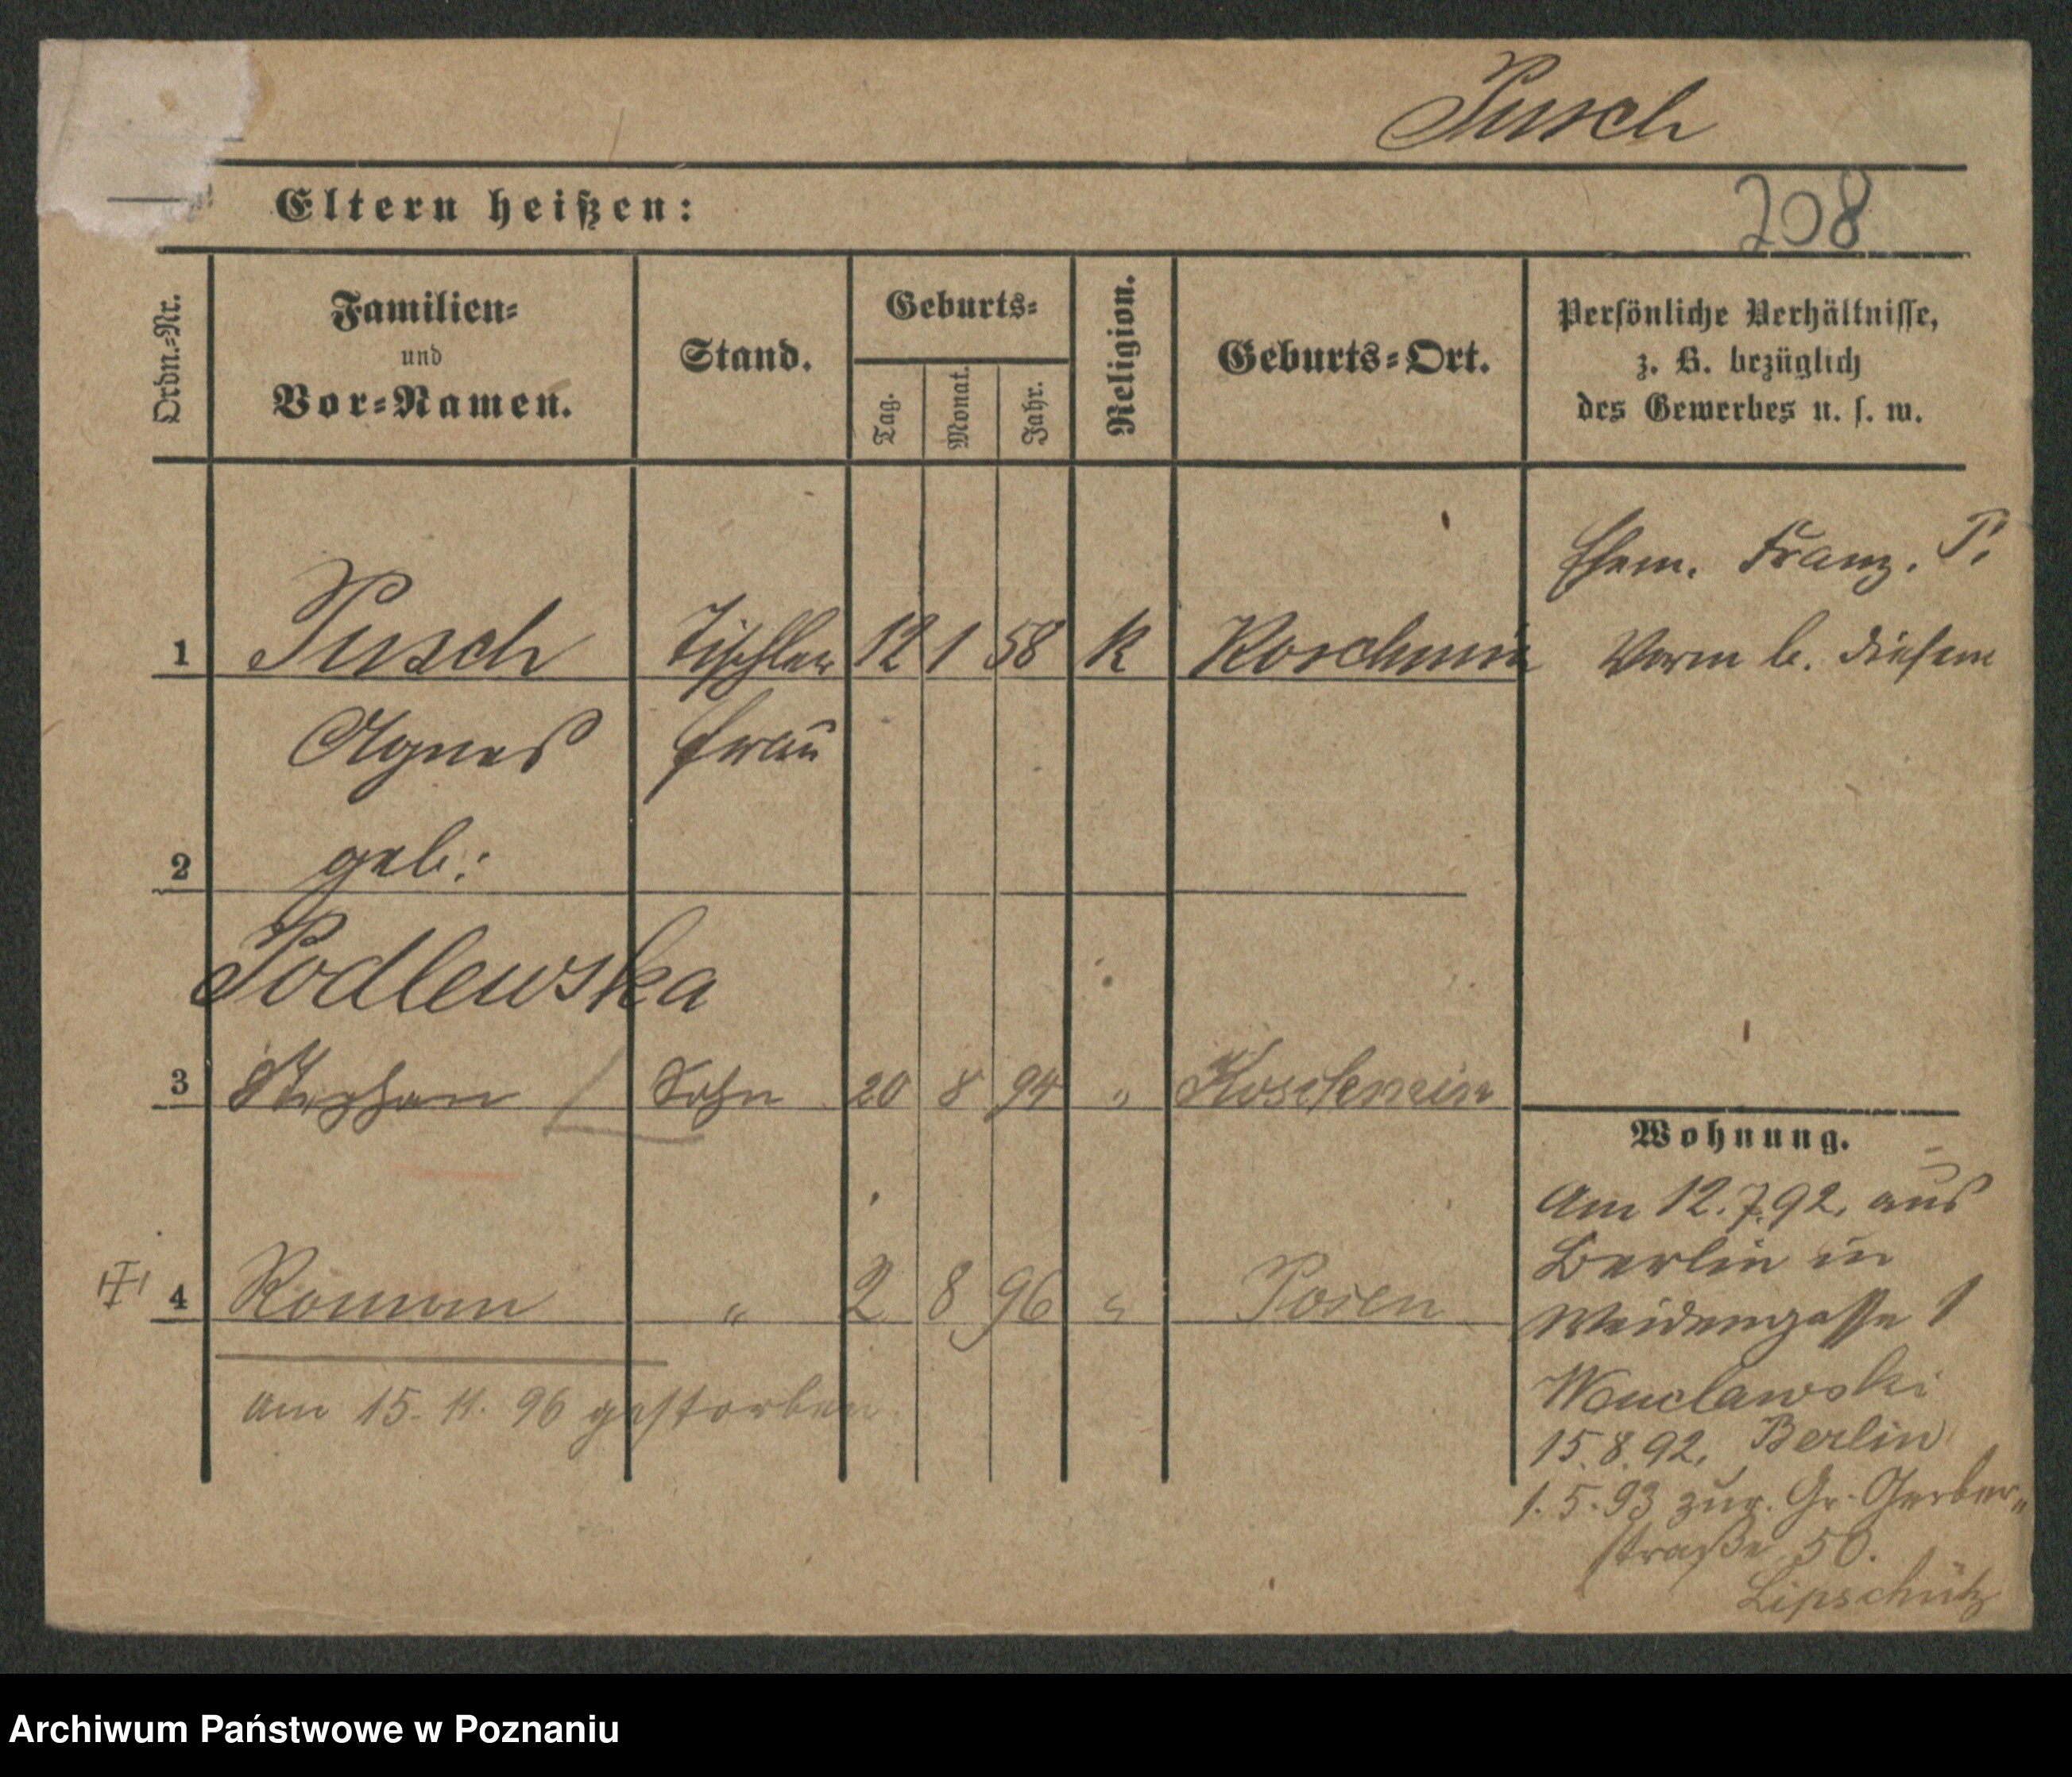 Pusch
Eltern heißen:
208
Ordn.-Nr.
Familien-
und
Vor-Namen.
Stand.
Geburts-
Tag.
Monat.
Jahr.
Religion.
Geburts-Ort.
Persönliche Verhältnisse,
z. B. bezüglich
des Gewerbes u. s. w.
Ehem. Franz. P.
1 Pusch Tischler 12 1 58 K Koschmin Vorm b. diesem
Agnes frau
2 geb:
Podlewska
3 Stephan Sohn 20 8 94 " Koschmin
Wohnung.
Am 12.7.92. aus
Berlin in
Weidengasse 1
15.8.92. Berlin
1.5.93 zur. Gr. Gerber-
straße 50.
Lipschütz
4 Roman " 2 8 96 " Posen
am 15. 11. 96 gestorben
Archiwum Państwowe w Poznaniu